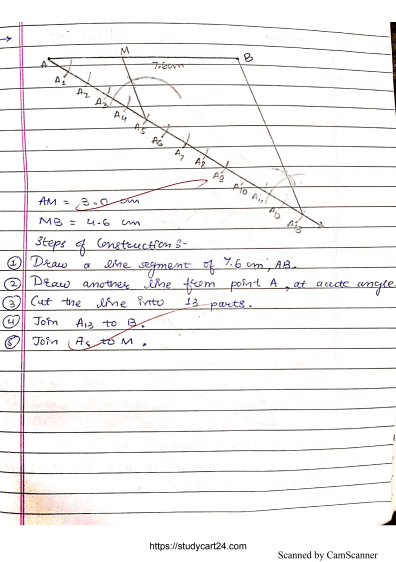 M
A
B
7.6cm
A1 A2 A3 A4 A5 A6 A7 A8 A9 A10 A11 A12 A13
AM = 3.0 cm
MB = 4.6 cm
Steps of Construction :-
① Draw a line segment of 7.6 cm, AB.
② Draw another line from point A, at acute angle
③ Cut the line into 13 parts.
④ Join A13 to B.
⑤ Join A5 to M.
https://studycart24.com
Scanned by CamScanner